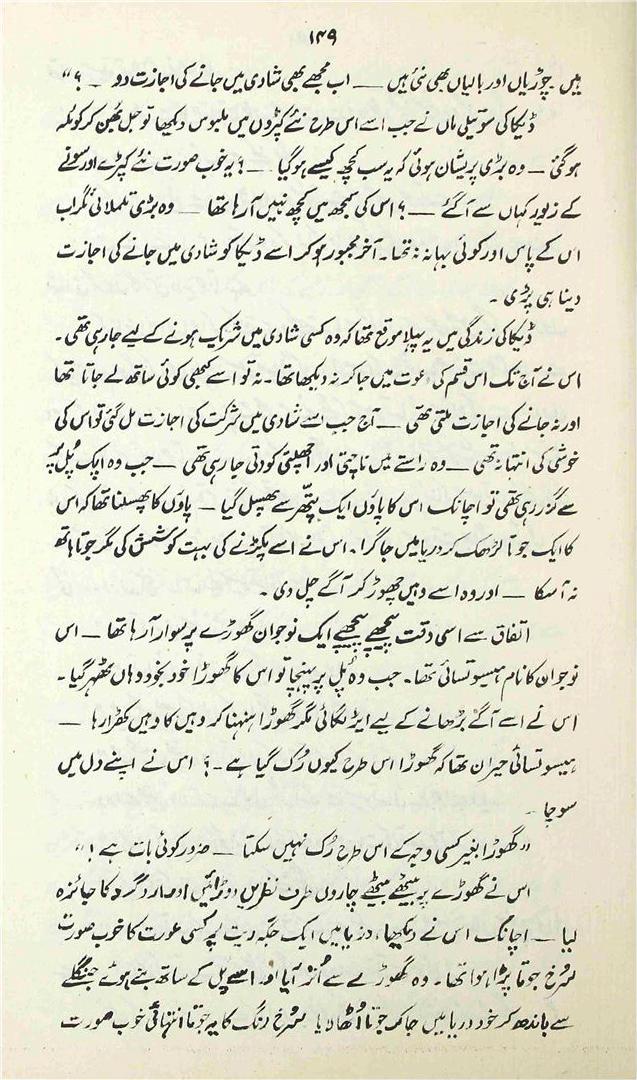 ۱۴۹
ہیں چوڑیاں اور بالیاں بھی نئی ہیں — اب مجھے بھی شادی میں جانے کی اجازت دو — ؟"
ڈیکا کی سوتیلی ماں نے جب اسے اس طرح نئے کپڑوں میں ملبوس دیکھا تو جل بھن کر کوئلہ
ہو گئی — وہ بڑی پریشان ہوئی کہ یہ سب کچھ کیسے ہو گیا — ؟ یہ خوب صورت نئے کپڑے اور سونے
کے زیور کہاں سے آ گئے — ؟ اس کی سمجھ میں کچھ نہیں آ رہا تھا — وہ بڑی تلملائی مگر اب
اس کے پاس اور کوئی بہانہ نہ تھا۔ آخر مجبور ہو کر اسے ڈیکا کو شادی میں جانے کی اجازت
دینا ہی پڑی ۔
ڈیکا کی زندگی میں یہ پہلا موقع تھا کہ وہ کسی شادی میں شریک ہونے کے لیے جا رہی تھی۔
اس نے آج تک اس قسم کی دعوت میں جا کر نہ دیکھا تھا۔ نہ تو اسے کبھی کوئی ساتھ لے جاتا تھا
اور نہ جانے کی اجازت ملتی تھی — آج جب اسے شادی میں شرکت کی اجازت مل گئی تو اس کی
خوشی کی انتہا نہ تھی — وہ راستے میں ناچتی اور اچھلتی کودتی جا رہی تھی — جب وہ ایک پُل پر
سے گزر رہی تھی تو اچانک اس کا پاؤں ایک پتھر سے پھسل گیا — پاؤں کا پھسلنا تھا کہ اس
کا ایک جوتا لڑھک کر دریا میں جا گرا۔ اس نے اسے پکڑنے کی بہت کوشش کی مگر جوتا ہاتھ
نہ آ سکا — اور وہ اسے وہیں چھوڑ کر آگے چل دی ۔
اتفاق سے اسی وقت پیچھے پیچھے ایک نوجوان گھوڑے پر سوار آ رہا تھا — اس
نوجوان کا نام ہیسوتسائی تھا۔ جب وہ پُل پر پہنچا تو اس کا گھوڑا خود بخود وہاں ٹھہر گیا۔
اس نے اسے آگے بڑھانے کے لیے ایڑ لگائی مگر گھوڑا ہنہنا کر وہیں کا وہیں کھڑا رہا —
ہیسوتسائی حیران تھا کہ گھوڑا اس طرح کیوں رُک گیا ہے — ؟ اس نے اپنے دل میں
سوچا —
"گھوڑا بغیر کسی وجہ کے اس طرح رُک نہیں سکتا — ضرور کوئی بات ہے !"
اس نے گھوڑے پر بیٹھے بیٹھے چاروں طرف نظریں دوڑائیں اور ارد گرد کا جائزہ
لیا — اچانک اس نے دیکھا، دریا میں ایک جگہ ریت پر کسی عورت کا خوب صورت
سُرخ جوتا پڑا ہوا تھا۔ وہ گھوڑے سے اُتر آیا اور اسے پل کے ساتھ بنے ہوئے جنگلے
سے باندھ کر خود دریا میں جا کر جوتا اُٹھا لایا۔ سُرخ رنگ کا یہ جوتا انتہائی خوب صورت